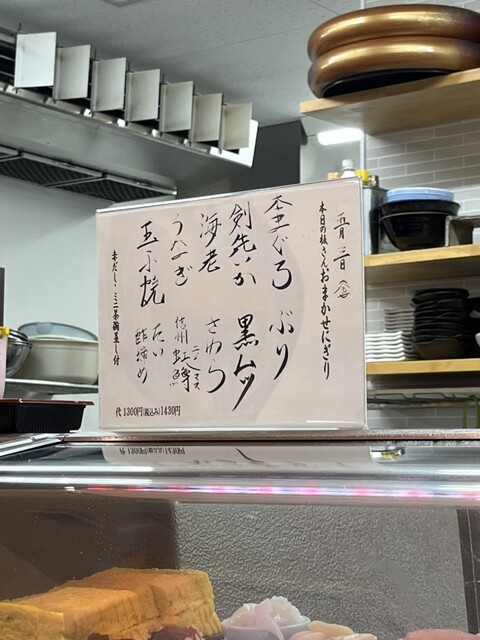 五月 三日 (金)
本日の板さんおまかせにぎり
本まぐろ ぶり
剣先いか 黒ムツ
海老 さわら
うなぎ 信州虹鱒
ニジマス
玉子焼 たい酢締め
赤だし・ミニ茶碗蒸し付
代1300円(税込み)1430円